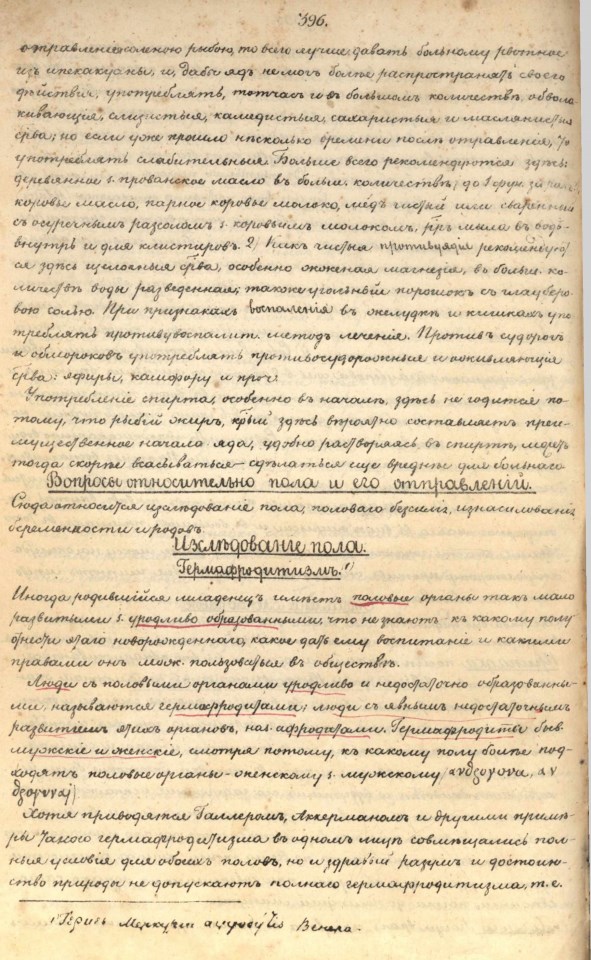 396.
отравленiе соленою рыбою, то всего лучше давать больному рвотное
изъ ипекакуаны, и, дабы ядъ не могъ болѣе распространять своего
дѣйствiя, употреблять, тотчасъ же въ большомъ количествѣ, обвола
кивающiя, слизистыя, камедистыя, сахаристыя и маслянистыя
ср̃ва; но если уже прошло нѣсколько времени послѣ отравленiя, то
употреблять слабительныя. Больше всего рекомендуются здѣсь:
деревянное s. прованское масло въ больш. количествѣ, до 1 фун. за разъ,
коровье масло, парное коровье молоко, мёдъ чистый или сваренный
съ огуречнымъ разсоломъ s. коровьимъ молокомъ, р̃ръ мыла въ водѣ
внутрь и для клистировъ. 2) Какъ чистыя противуядiя рекомендую̃т
ся здѣсь щелочныя ср̃ва, особенно жженая магнезiя, въ больш. ко-
личествѣ воды разведенная; также угольный порошокъ съ глауберо-
вою солью. При признакахъ воспаленiя въ желудкѣ и кишкахъ упо
треблять противувоспалит. методъ леченiя. Противъ судорогъ
и обмороковъ употреблять противосудорожныя и оживляющiя
ср̃ва: эфиры, камфору и проч.
Употребленiе спирта, особенно въ началѣ, здѣсь не годится по-
тому, что рыбiй жиръ, к̃рый здѣсь вѣроятно составляетъ преи-
мущественное начало яда, удобно растворяясь въ спиртѣ, можетъ
тогда скорѣе всасываться – сдѣлаться еще вреднѣе для больнаго.
Вопросы относительно пола и его отправленiй.
Сюда относится изслѣдованiе пола, половаго безсилiя, изнасилованiя
беременности и родовъ.
Изслѣдованiе пола.
Гермафродитизмъ.¹)
Иногда родившiйся младенецъ имѣетъ половые органы такъ мало
развитыми s. уродливо образованными, что не знаютъ къ какому полу
отнести этаго новорожденнаго, какое дать ему воспитанiе и какими
правами онъ мож. пользоваться въ обществѣ.
Люди съ половыми органами уродливо и недостаточно образованны-
ми, называются гермафродитами; люди съ явнымъ недостаточнымъ
развитiемъ этихъ органовъ, наз. афродитами. Гермафродиты быв.
мужскiе и женскiе, смотря потому, къ какому полу болѣе под-
ходятъ половые органы – женскому s. мужскому (ανδρογυνα, αν
δρογυναι)
Хотя приводятся Галлеромъ, Аккерманомъ и другими примѣ-
ры такого гермафродитизма въ одномъ лицѣ совмѣщались пол-
ныя условiя для обоихъ половъ, но и здравый разумъ и достоин-
ство природы не допускаютъ полнаго гермафродитизма, т. е.
Меркурiй Венера.